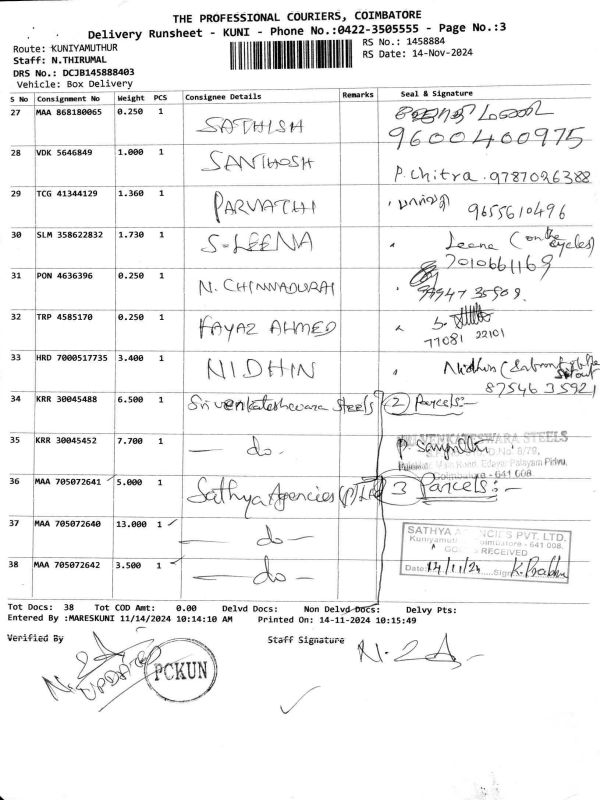 THE PROFESSIONAL COURIERS, COIMBATORE
Delivery Runsheet - KUNI - Phone No.:0422-3505555 - Page No.:3
Route: KUNIYAMUTHUR
RS No.: 1458884
Staff: N.THIRUMAL
RS Date: 14-Nov-2024
DRS No.: DCJB145888403
Vehicle: Box Delivery
S No Consignment No Weight PCS Consignee Details Remarks Seal & Signature
27 MAA 868180065 0.250 1 SATHISH 9600400975
28 VDK 5646849 1.000 1 SANTHOSH P. Chitra. 9787026388
29 TCG 41344129 1.360 1 PARVATHI பார்வதி 9655610496
30 SLM 358622832 1.730 1 S-LEENA " Leena (on the cycles)
7010661169
31 PON 4636396 0.250 1 N. CHINNADURAI 99947 35909.
32 TRP 4585170 0.250 1 FAYAZ AHMED "
77081 22101
33 HRD 7000517735 3.400 1 NIDHIN " Nidhin
87546 35921
34 KRR 30045488 6.500 1 Sri venkateshwara Steels 2 Parcels:-
35 KRR 30045452 7.700 1 — do. — P.
SRI VENKATESWARA STEELS
Main Road, Edayar Palayam Pirivu,
Coimbatore - 641 008
36 MAA 705072641 5.000 1 Sathya Agencies (P) Ltd 3 Parcels:-
37 MAA 705072640 13.000 1 — do —
SATHYA AGENCIES PVT. LTD.
Kuniyamuthur, Coimbatore - 641 008.
GOODS RECEIVED
38 MAA 705072642 3.500 1 — do — Date: 14/11/24 Sign K. Prabhu
Tot Docs: 38 Tot COD Amt: 0.00 Delvd Docs: Non Delvd Docs: Delvy Pts:
Entered By :MARESKUNI 11/14/2024 10:14:10 AM Printed On: 14-11-2024 10:15:49
Verified By Staff Signature
UPDATED
PCKUN